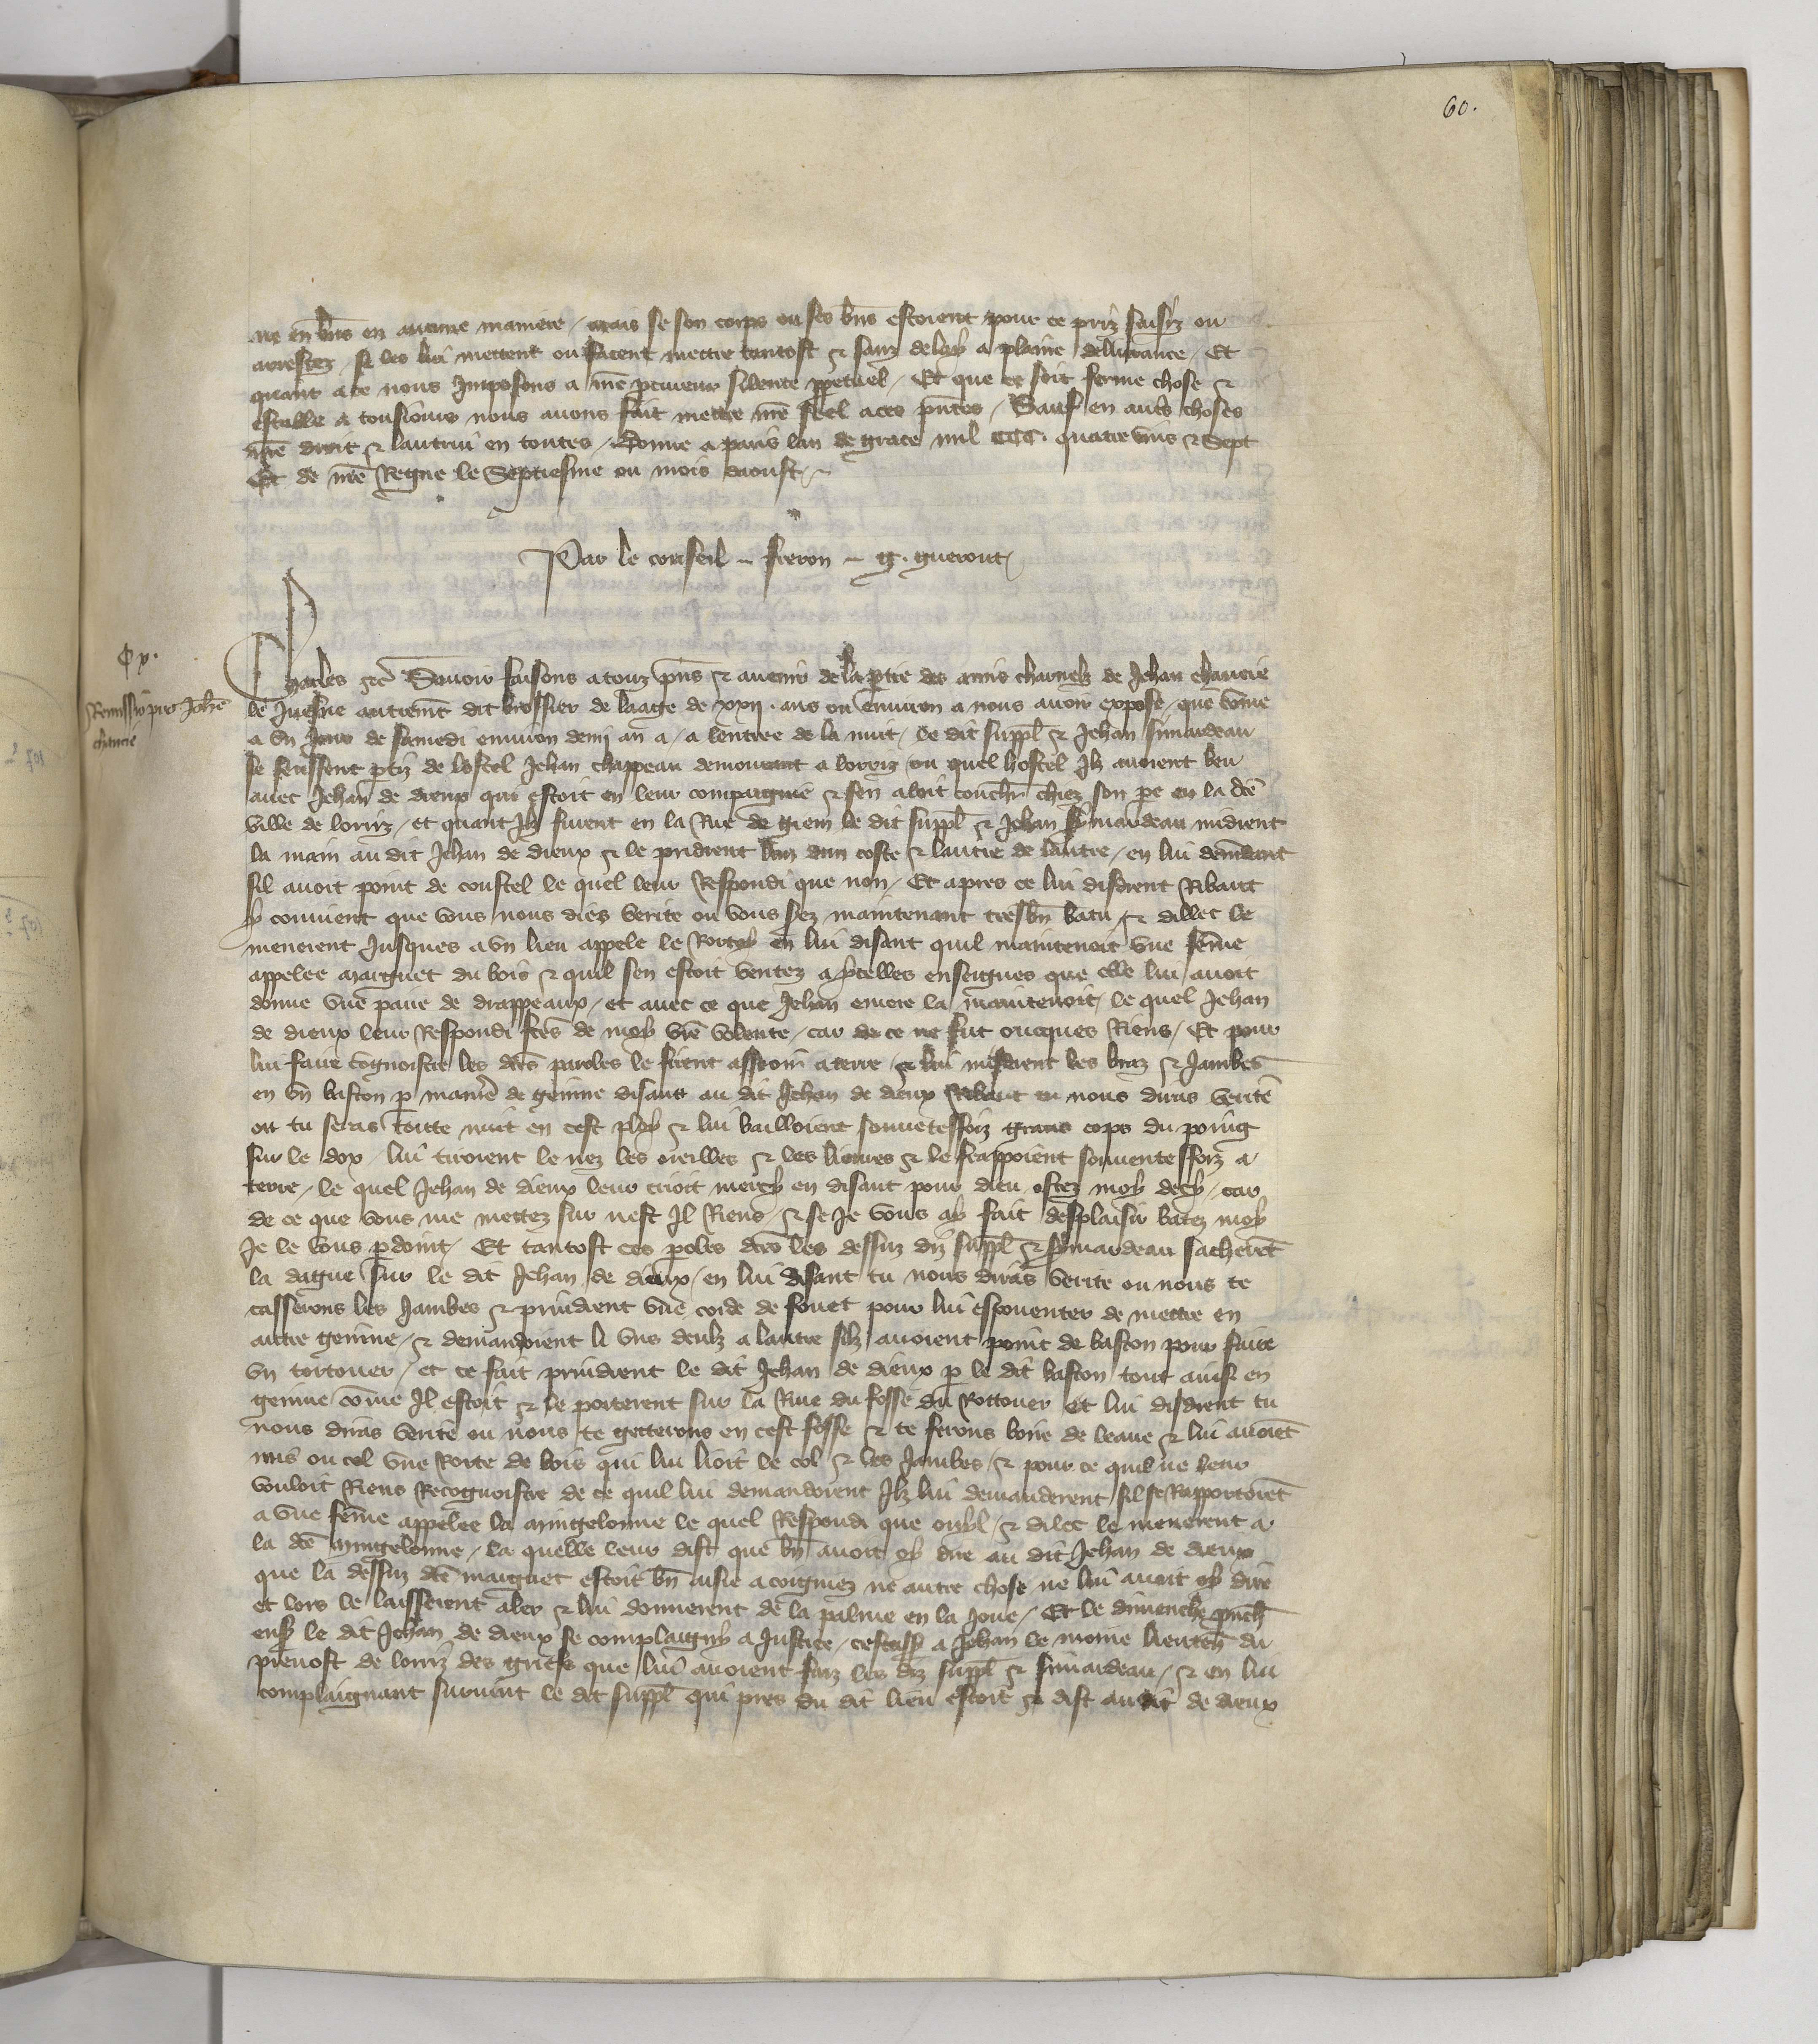 60.
ne en bn̄s en aucune maniere / mais se son corps ou ses bn̄s estoient pour ce priz saisiz ou
arrestez / se les lui mettent ou facent mettre tantost & sanz delay a plaine deliurance / Et
quant a ce nous Imposons a nr̄e ꝓcureur silence ꝑpetuel / Et que ce soit ferme chose &
estable a tousiours nous auons fait mettre nr̄e seel a ces pn̄tes / Sauf en autr̄s choses
nr̄e droit & lautrui en toutes / Donne a paris lan de grace mil CCC. quatre vins & Sept
Et de nr̄e Regne le Septiesme ou mois daoust /
Par le conseil ~ freron ~ g. gueront
Cx.
Remissio pro Joh̄e
chaucie
Charles &c̄ Sauoir faisons a touz pn̄s & auenir de la ꝑtie des amis charnelz de Jehan chaucie
le Juesne autremēt dit brossier de laage de xxij. ans ou enuiron a nous auoir expose / que cōme
a vn Jour de samedi enuiron demi an a / a lentree de la nuit / le dit suppl̄ & Jehan simardeau
se feussent ꝑtiz de lostel Jehan chappeau demourant a lorriz ou quel hostel Ilz auoient beu
auec Jehan de dieux qui estoit en leur compaignie & sen aloit couch̄r chiez son pe en la dc̄e
ville de lorriz / et quant Ilz furent en la Rue de giem le dit suppl̄ & Jehan symardeau midient
la main au dit Jehan de dieux & le pridrent lun dun coste & lautre de lautre / en lui demādant
sil auoit point de coustel le quel leur Respondi que non / Et apres ce lui disdrent Ribaut
y conuient que vous nous diez verite ou vous s̄ez maintenant tresbn̄ batu / & dillec le
menerent Jusques a vn lieu appele le Rortoy en lui disant quil maintenoit vne fēme
appelee marguet du bois & quil sen estoit ventez a ycelles enseignes que elle lui auoit
donne vne paire de drappeaux / et auec ce que Jehan emere la maintenoit / le quel Jehan
de dieux leur Respondi ftēs de moy vr̄e volente / car de ce ne fut oncques Riens / Et pour
lui faire cōgnoistre les dc̄es paroles le firent asseoir a terre / & lui misdrent les braz & Jambes
en vn baston ꝑ manie de genine disant au dit Jehan de dieux Ribaut tu nous diras verite
ou tu seras toute nuit en cest ploy & lui bailloient souuentesfoiz grans cops du poing
sur le dox / lui tiroient le nez les oreilles & les lieures & le frappoient souuentesfoiz a
terre / le quel Jehan de dieux leur crioit mercy en disant pour dieu ostez moy decy / car
de ce que vous me mettez sur nest Il Riens / & se Je vous ay fait desplaisir batez moy
Je le vous ꝑdoint / Et tantost ces ꝑoles dc̄es les dessuz diz suppl̄ & symardeau sacherēt
la dague sur le dit Jehan de dieux / en lui disant tu nous diras verite ou nous te
casserons les Jambes & prindrent vne corde de fouet pour lui espouenter de mettre en
autre genine / & demandoient li vns deulz a lautre silz auoient point de baston pour faire
vn tortouer / et ce fait prindrent le dit Jehan de dieux ꝑ le dit baston tout ainsi en
genine cōme Il estoit & le porterent sur la Riue du fosse du Rottouer et lui disdrent tu
nous diras verite ou nous te getterons en cest fosse & te ferons boire de leaue & lui auoiēt
mis ou col vne Rorte de bois qui lui lioit le col & les Jambes / & pour ce quil ne leur
vouloit Riens Recognoistre de ce quil lui demandoient Ilz lui demanderent sil se Rapportoiēt
a vne fēme appelee la mingelonne le quel Respondi que oyl / & dilec le menerent a
la dc̄e mingelonne / la quelle leur dist que bn̄ auoit oy dire au dit Jehan de dieux
que la dessuz dc̄e marguet estoit bn̄ aisie a congniez ne autre chose ne lui auoit oy dire
et lors le laisserent aler & lui donnerent de la palme en la Joue / Et le dimenche pn̄ch̄
ensꝰ le dit Jehan de dieux se complaigny a Justice / cestass̄ a Jehan le moine lieuten̄ du
preuost de lorriz des griefs que lui auoient faiz les diz suppl̄ & simardeau / & en lui
complaignant suruint le dit suppl̄ qui pres du dit lieu estoit & dist audit de dieux